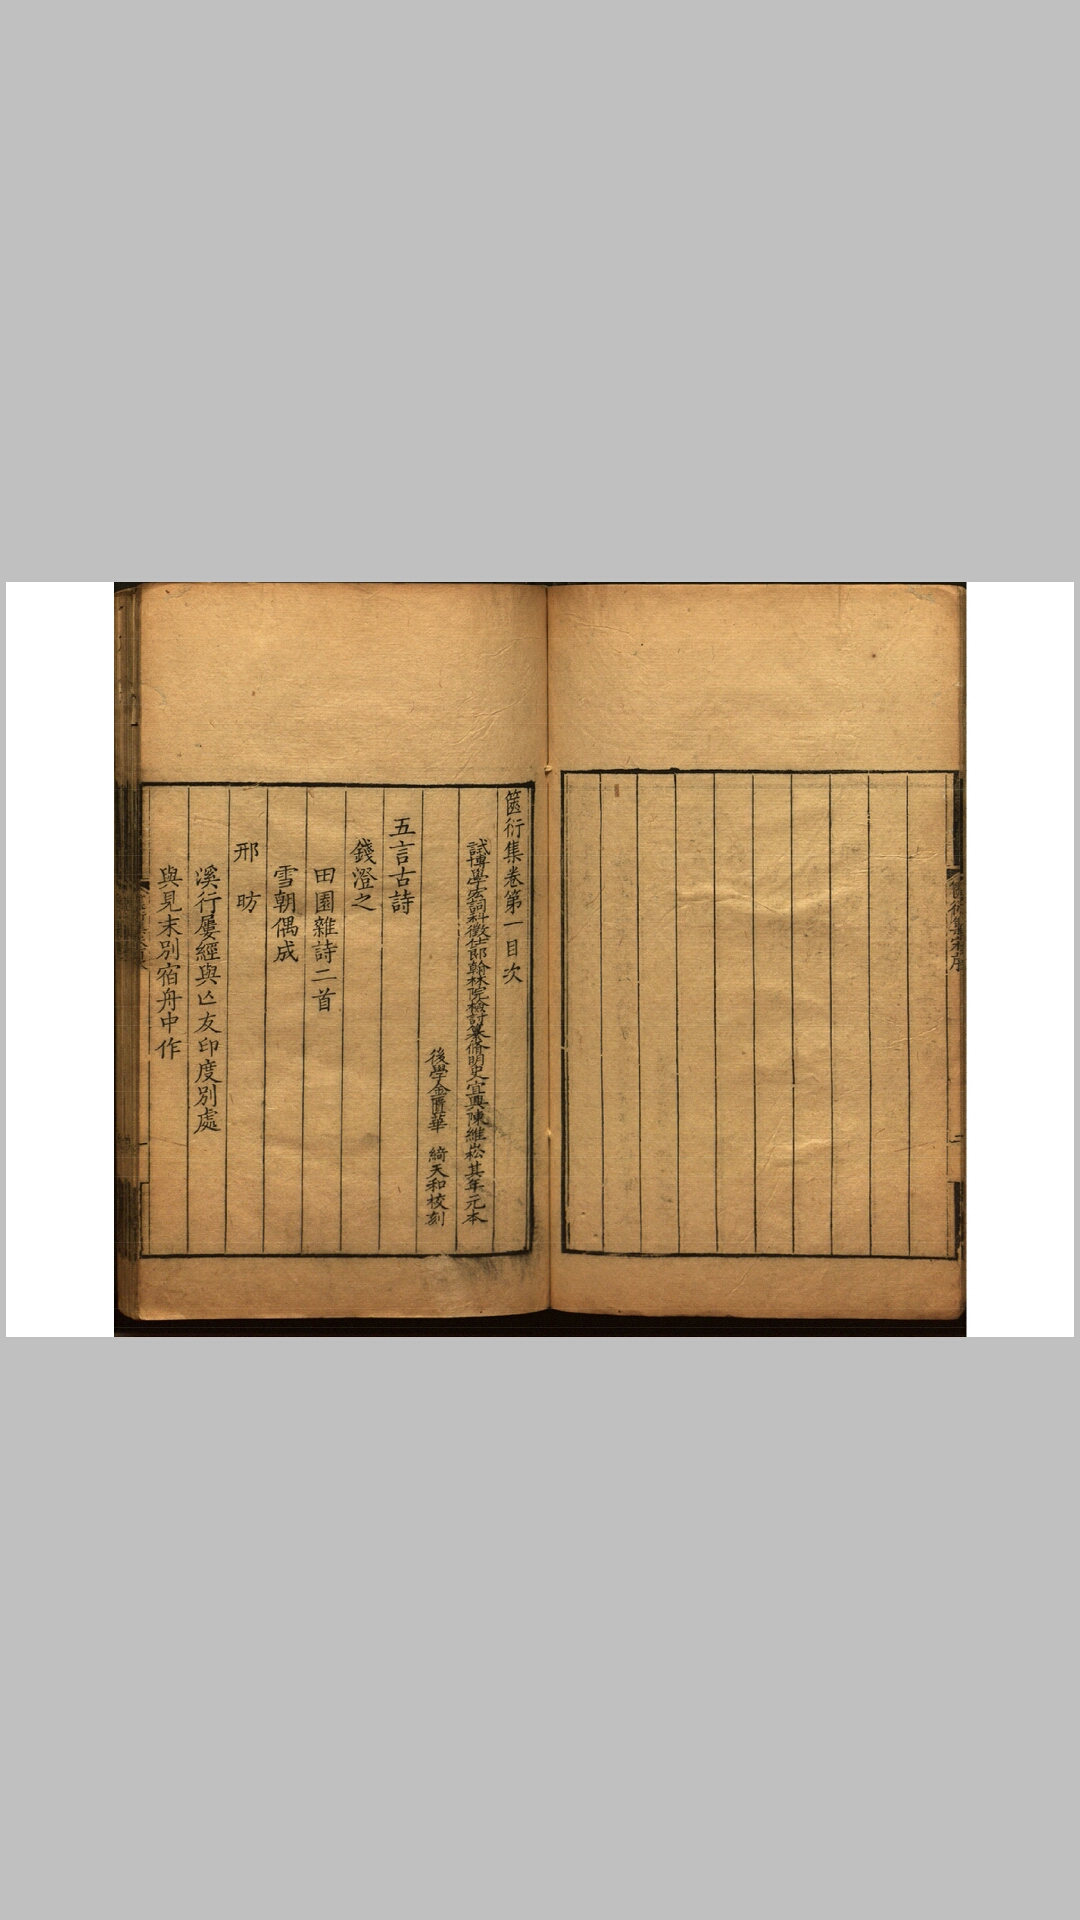 篋衍集卷第一目次
試博學宏詞科徵仕郎翰林院檢討纂脩明史宜興陳維崧其年元本
後學金匱華　綺天和校刻
五言古詩
錢澄之
田園雜詩二首
雪朝偶成
邢　昉
溪行屢經與亾友印度別處
與見末別宿舟中作